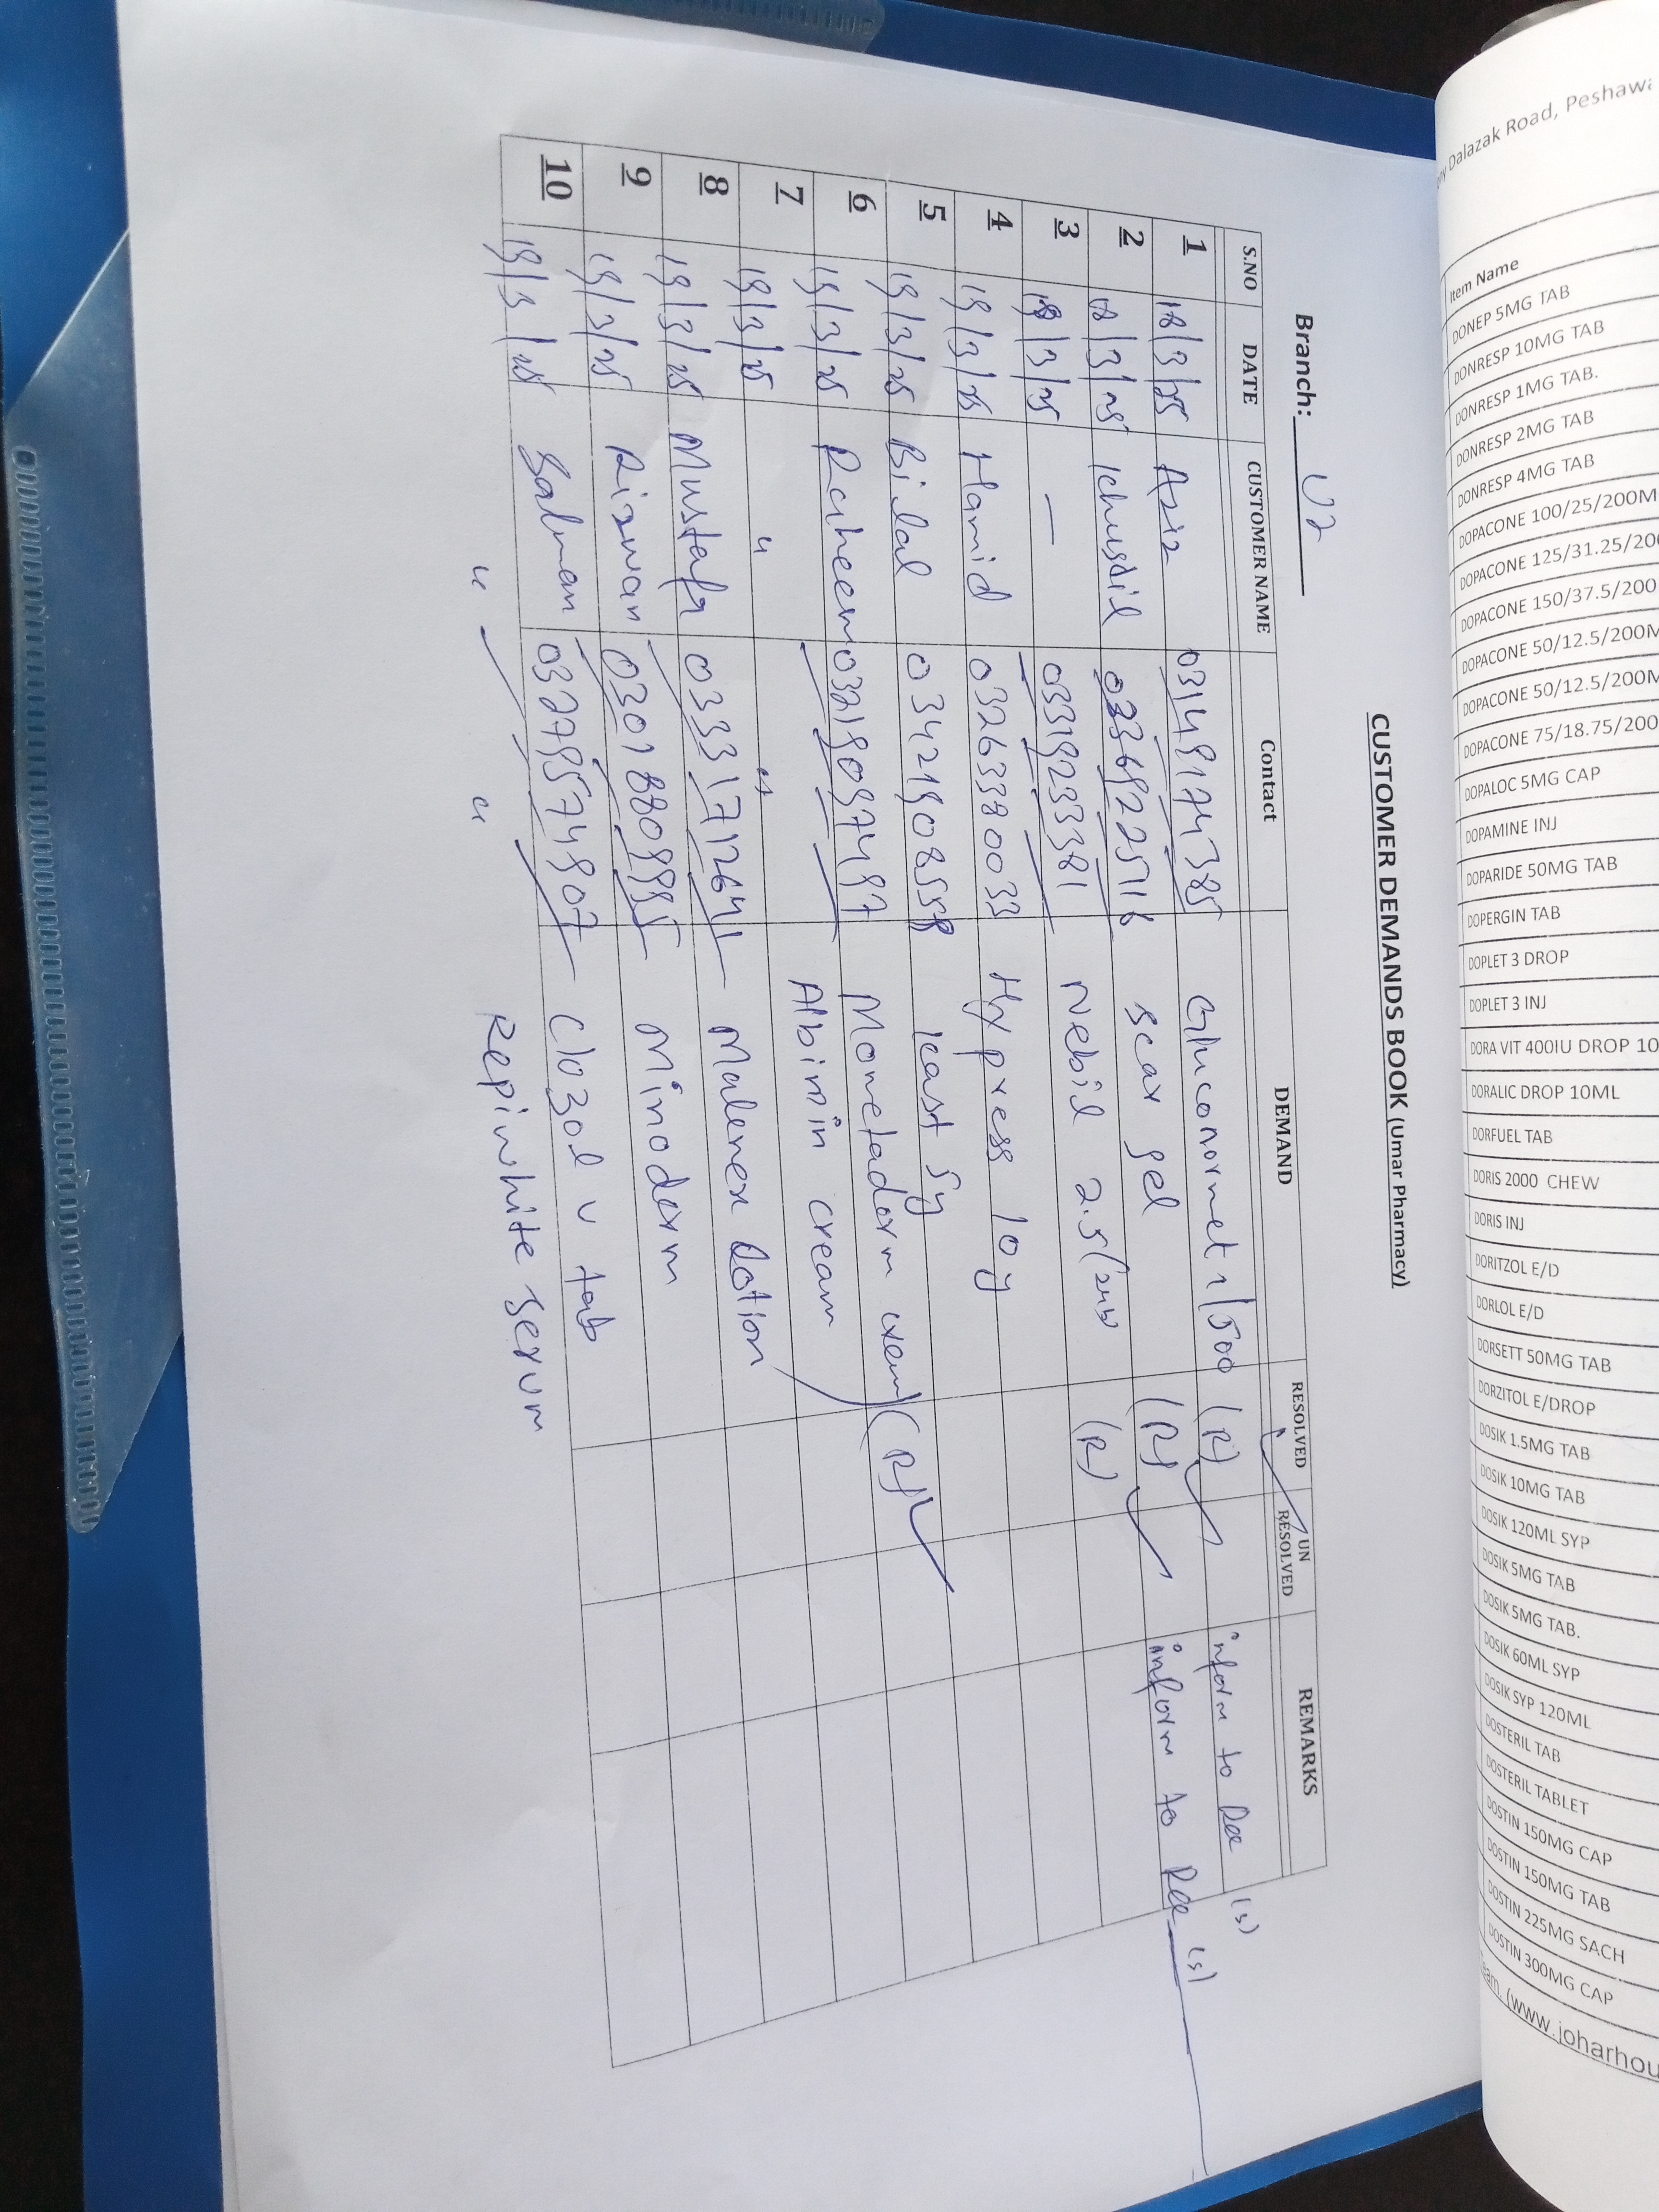 CUSTOMER DEMANDS BOOK (Umar Pharmacy)
Branch: U2
S.NO DATE CUSTOMER NAME Contact DEMAND RESOLVED UN RESOLVED REMARKS
1 18/3/25 Aziz 03149174385 Gluconormet 1/500 (R) inform to Rae (s)
2 18/3/25 Ichusdil 03369225716 scar gel (R) inform to Rae (s)
3 18/3/25 — 03319233381 Nebil 2.5/ (R)
4 19/3/25 Hamid 03263380033 Hypress 10g
5 19/3/25 Bilal 03421908558 icast 5g
6 19/3/25 Raheem 03219097497 Monetaderm cream (R)
7 19/3/25 " " Albimin cream
8 19/3/25 Mustafa 03331712641 Malenex Lotion
9 19/3/25 Rizwan 03018809995 Minoderm
10 19/3/25 Salman 03279574907 Clozol v tab
" " Repinwhite serum
ny Dalazak Road, Peshawa
Item Name
DONEP 5MG TAB
DONRESP 10MG TAB
DONRESP 1MG TAB.
DONRESP 2MG TAB
DONRESP 4MG TAB
DOPACONE 100/25/200M
DOPACONE 125/31.25/200
DOPACONE 150/37.5/200
DOPACONE 50/12.5/200M
DOPACONE 50/12.5/200M
DOPACONE 75/18.75/200
DOPALOC 5MG CAP
DOPAMINE INJ
DOPARIDE 50MG TAB
DOPERGIN TAB
DOPLET 3 DROP
DOPLET 3 INJ
DORA VIT 400IU DROP 10
DORALIC DROP 10ML
DORFUEL TAB
DORIS 2000 CHEW
DORIS INJ
DORITZOL E/D
DORLOL E/D
DORSETT 50MG TAB
DORZITOL E/DROP
DOSIK 1.5MG TAB
DOSIK 10MG TAB
DOSIK 120ML SYP
DOSIK 5MG TAB
DOSIK 5MG TAB.
DOSIK 60ML SYP
DOSIK SYP 120ML
DOSTERIL TAB
DOSTERIL TABLET
DOSTIN 150MG CAP
DOSTIN 150MG TAB
DOSTIN 225MG SACH
DOSTIN 300MG CAP
eam (www.joharhou